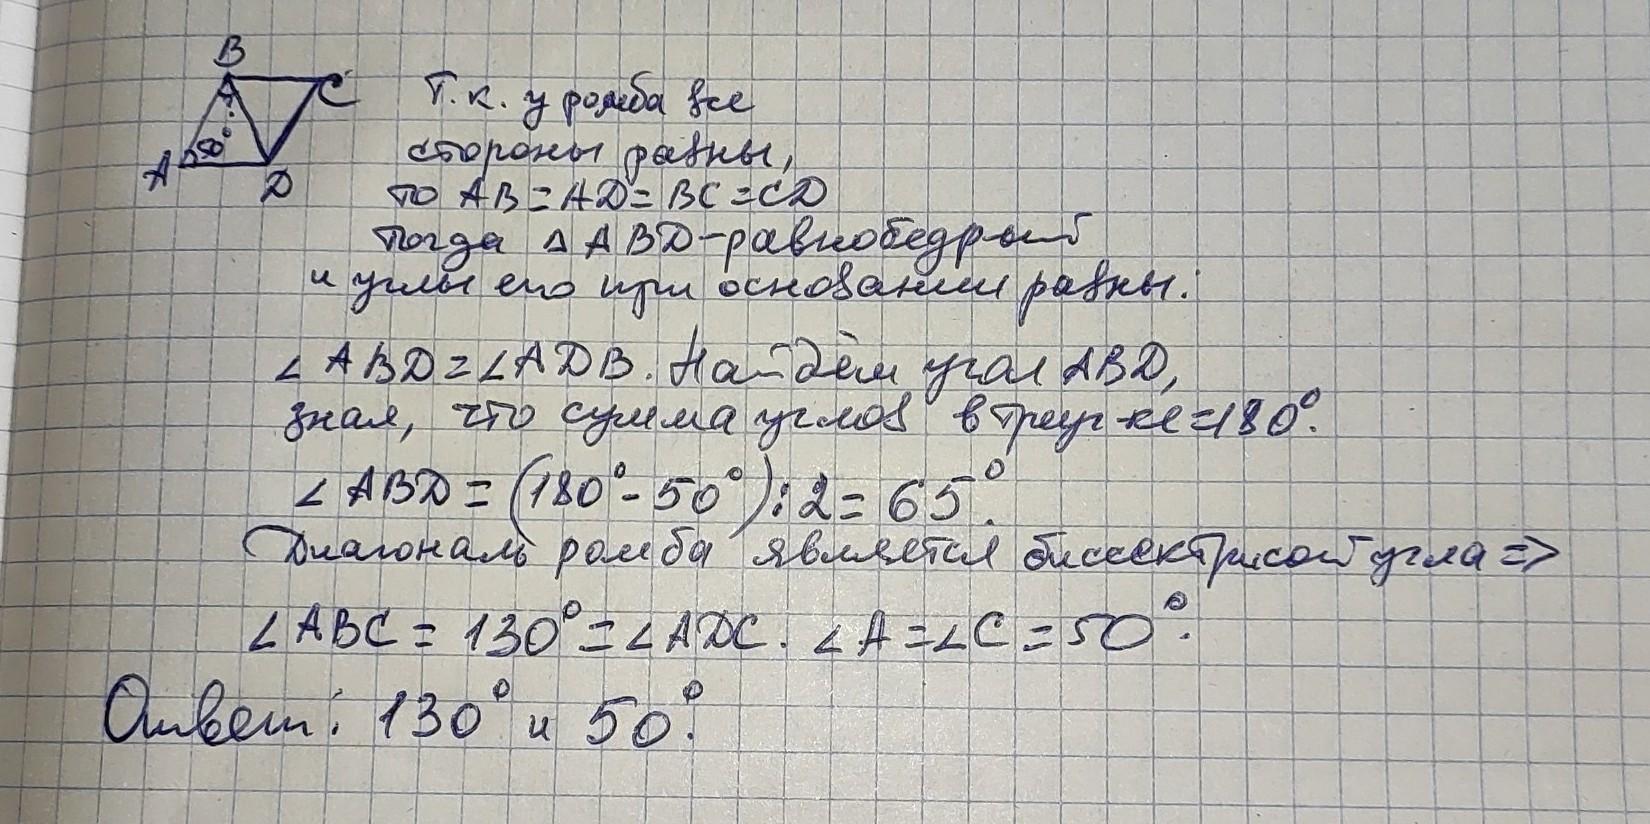 B
C
A
50°
D
Т.к. у ромба все
стороны равны,
то AB=AD=BC=CD
тогда △ABD-равнобедрый
и углы его при основании равны:
∠ABD=∠ADB. Найдём угол ABD,
зная, что сумма углов в треуг-ке=180°.
∠ABD=(180°-50°):2=65°.
Диагональ ромба является биссектрисой угла =>
∠ABC=130°=∠ADC. ∠A=∠C=50°.
Ответ: 130° и 50°.